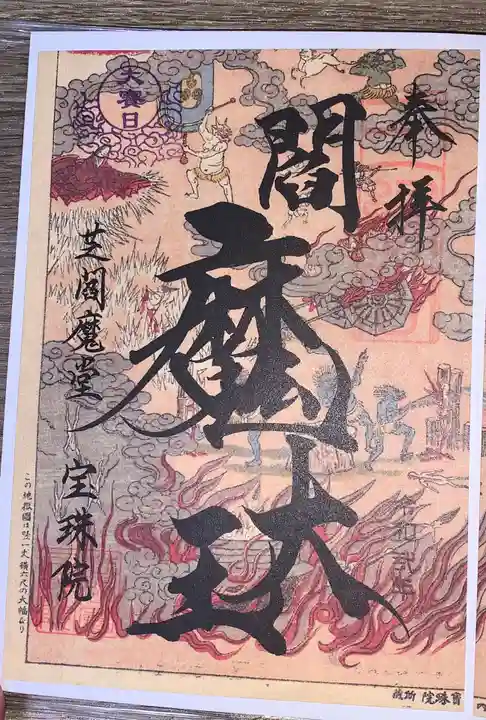 奉拝
閻魔大王
大賽日
芝閻魔堂 宝珠院
この地獄圖は竪一丈 横六尺の大幅なり
寳珠院 所蔵